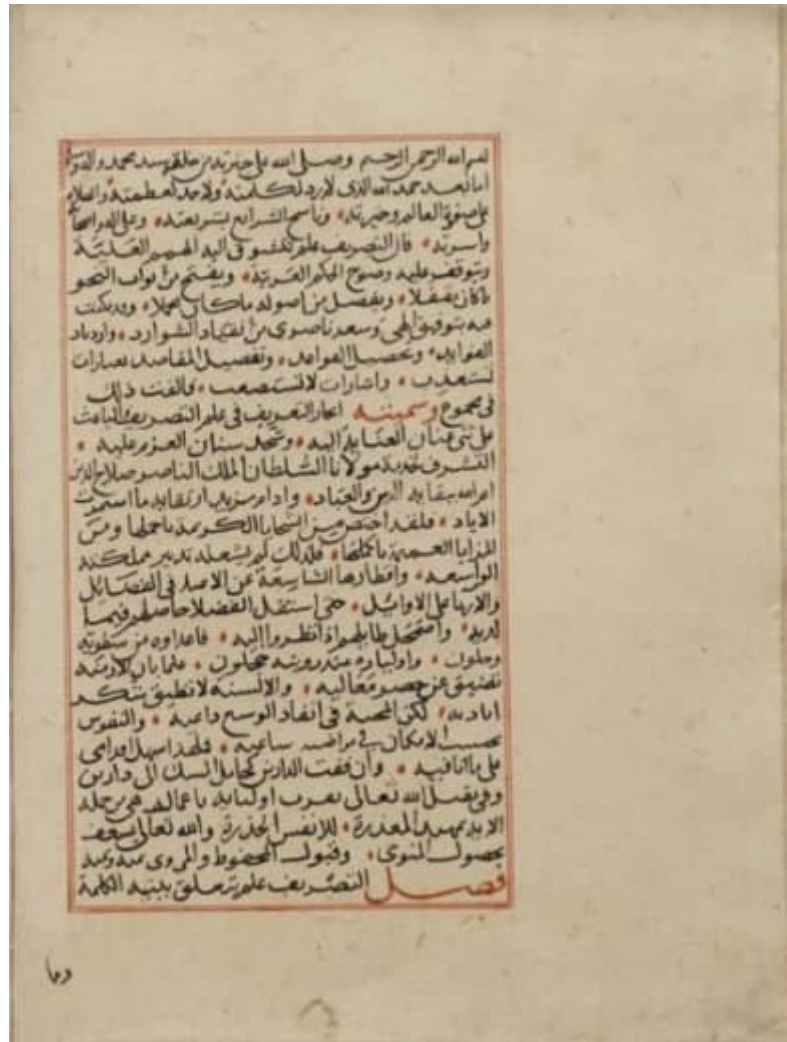 بسم الله الرحمن الرحيم وصلى الله على خيرته من خلقه سيد محمد واله وسلم
اما بعد حمد الله الذى لا راد لكلمته ولا حد لعظمته والصلاة
على صفوة العالم وخيرته وناسخ الشرايع بشريعته وعلى اله واصحابه
واسرته فان التصريف علم تتشوف اليه الهمم العلية
ويتوقف عليه وضوح الحكم العربية ويفتح من ابواب النحو
ما كان مقفلا ويفصل من اصوله ما كان مجملا وقد مكنت
فيه بتوفيق الهى وسعد ناصرى من انقياد الشوارد وازدياد
الفوايد وتحصيل القواعد وتفصيل المقاصد بعبارات
تستعذب واشارات لا تستصعب والفت ذلك
فى مجموع وسميته ايجاز التعريف فى علم التصريف والباعث
على ثنى عنان العناية اليه وشحذ سنان العزم عليه
التشرف بخدمة مولانا السلطان الملك الناصر صلاح الدين
ادام الله ببقايه الدين والعباد وادام مزيد ارتقايه ما استمرت
الاباد فلقد اختص من السجايا الكريمة باجملها ومن
المزايا العميمة باكملها فلذلك لم يشغله تدبير مملكته
الواسعة واقطارها الشاسعة عن الامد فى الفضايل
والاربا على الاوايل حتى استقل الفضلا حاصلهم فيما
لديه واضمحل طايلهم اذا نظروا اليه فاعداوه من سطوته
وجلون واولياوه من ثروته خجلون فلما بان الازمنة
تضيق عن حصر معاليه والالسنة لا تطيق شكر
اياديه لكن المحبة فى انفاد الوسع داعية والنفوس
بحسب الامكان فى مراضيه ساعية فلهذا سهل اقدامى
على ما انا فيه وان
وفى يقبل الله تعالى
بمهيد المعذرة للانفس الحذرة والله تعالى يسعف
بحصول المنوى وقبول المحفوظ والمروى بمنه ويمنه
فصل التصريف علم يتعلق ببنية الكلمة
وما